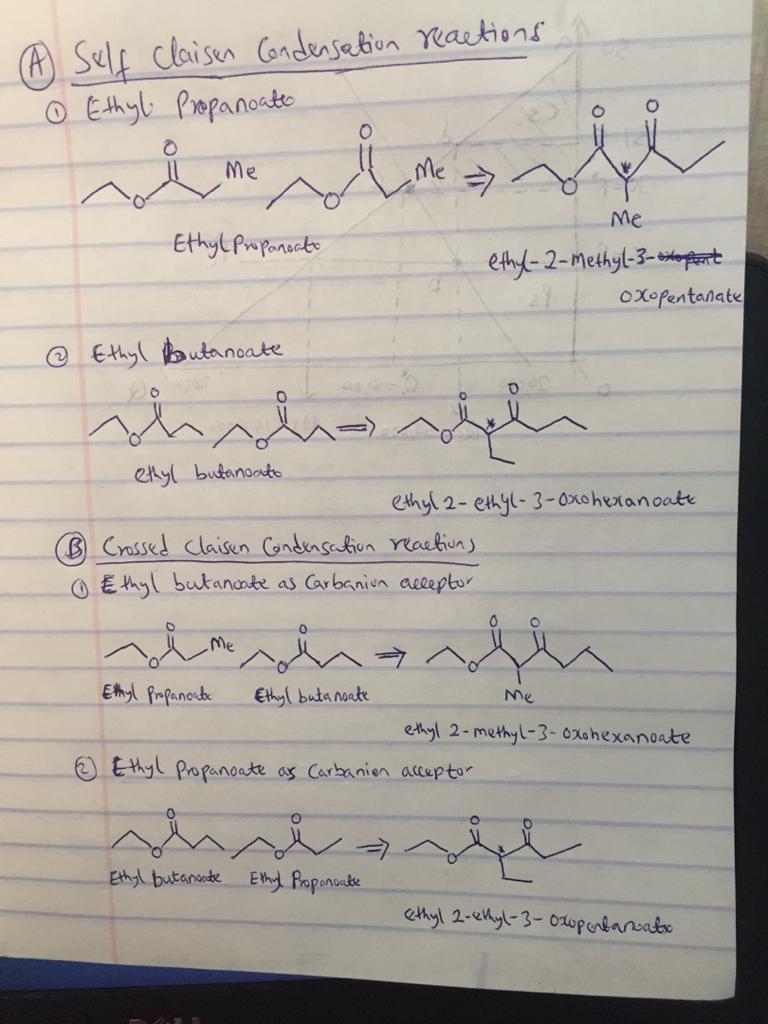 (A) Self Claisen Condensation reactions
① Ethyl Propanoate
O O O O
Me Me ⇒
O O O
Me
Ethyl Propanoate
ethyl-2-methyl-3-oxopent
oxopentanate
② Ethyl butanoate
O O O O
O O ⇒ O
ethyl butanoate
ethyl 2-ethyl-3-oxohexanoate
(B) Crossed Claisen Condensation reactions
① Ethyl butanoate as Carbanion acceptor
O O O O
Me ⇒
O O O
Ethyl Propanoate Ethyl butanoate Me
ethyl 2-methyl-3-oxohexanoate
② Ethyl Propanoate as Carbanion acceptor
O O O O
O O ⇒ O
Ethyl butanoate Ethyl Propanoate
ethyl 2-ethyl-3-oxopentanoate